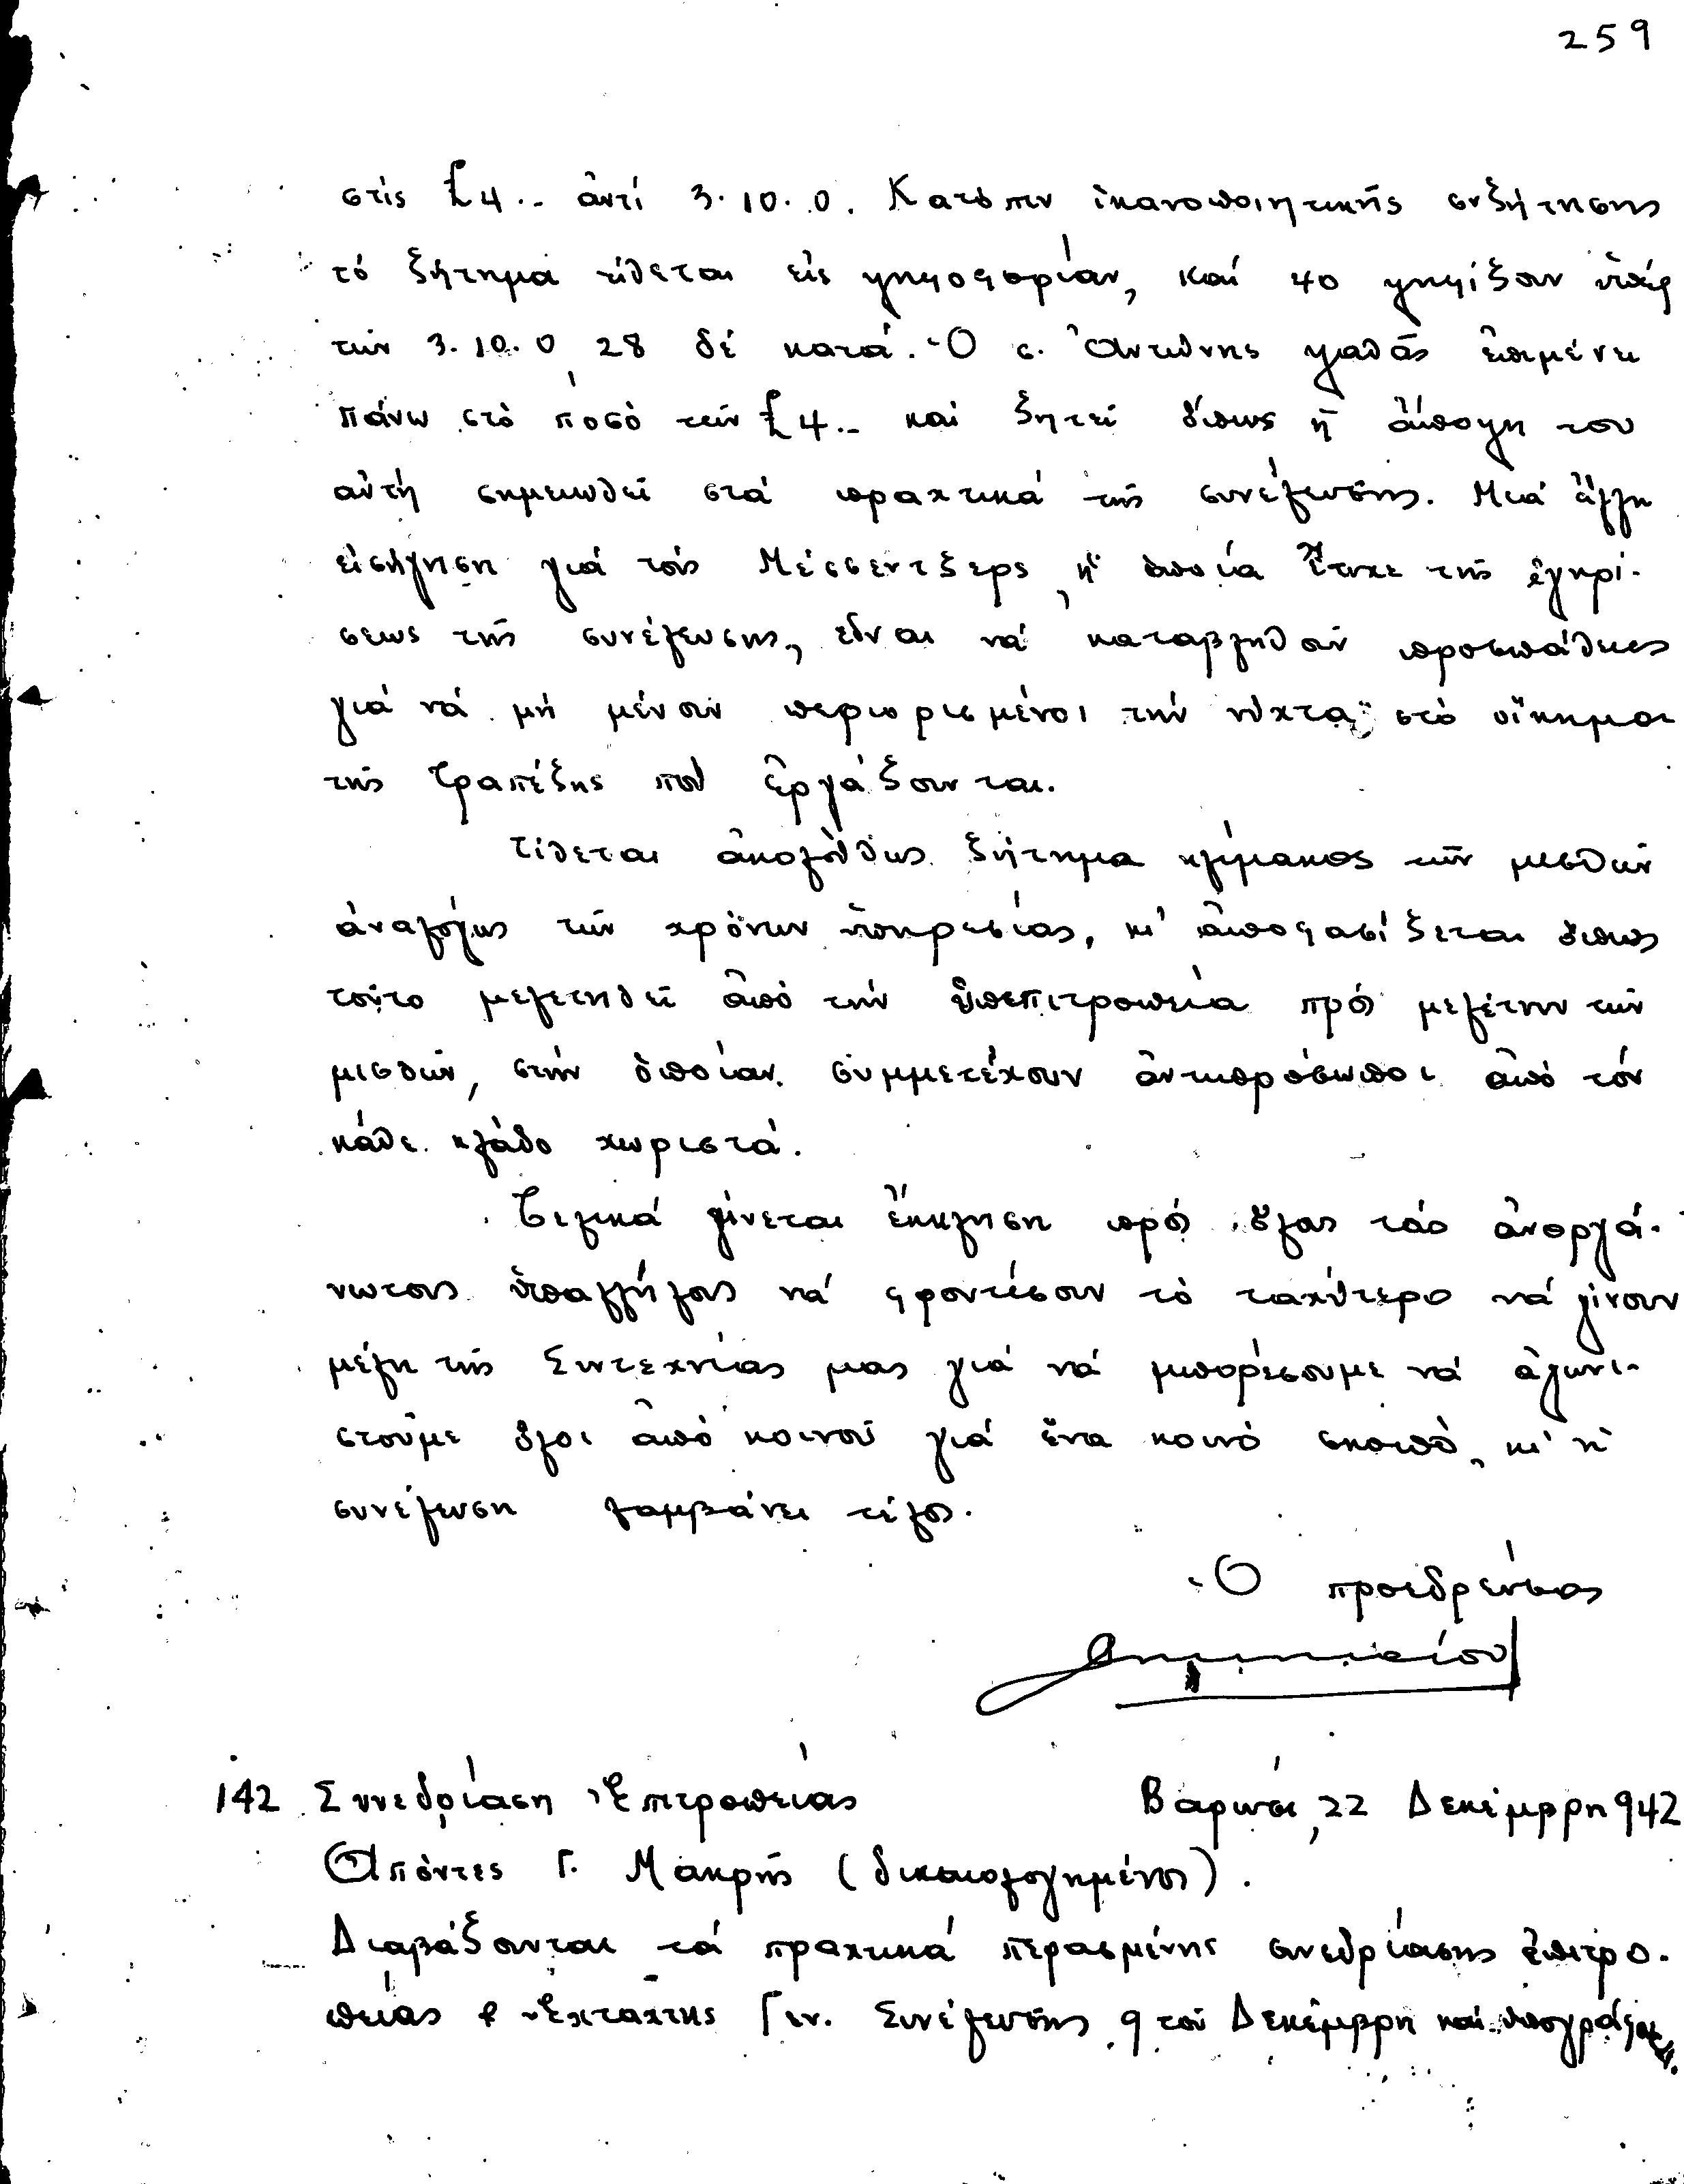 259
στίς £4.- ἀντί 3.10.0. Κατόπιν ἱκανοποιητικῆς συζήτησης
τό ζήτημα τίθεται εἰς ψηφοφορίαν, καί 40 ψηφίζουν ὑπέρ
τῶν 3.10.0, 28 δέ κατά. Ὁ σ. Ἀντώνης ψαθᾶς ἐπιμένει
πάνω στό ποσό τῶν £4.- καί ζητεῖ ὅπως ἡ ἄποψη του
αὐτή σημειωθεῖ στά πραχτικά τῆς συνέλευσης. Μιά ἄλλη
εἰσήγηση γιά τούς Μέσσεντζερς, ἡ ὁποία ἔτυχε τῆς ἐγκρί-
σεως τῆς συνέλευσης, εἶναι νά καταβληθοῦν προσπάθειες
γιά νά μή μένουν περιορισμένοι τήν νύχτα στό οἴκημα
τῆς Τραπέζης πού ἐργάζουνται.
Τίθεται ἀκολούθως ζήτημα κλίμακος τῶν μισθῶν
ἀναλόγως τῶν χρόνων ὑπηρεσίας, κι' ἀποφασίζεται ὅπως
τοῦτο μελετηθεῖ ἀπό τήν ὑπεπιτροπεία πρός μελέτην τῶν
μισθῶν, στήν ὁποίαν συμμετέχουν ἀντιπρόσωποι ἀπό τόν
κάθε κλάδο χωριστά.
Τελικά γίνεται ἔκκληση πρός ὅλους τούς ἀνοργά-
νωτους ὑπαλλήλους νά φροντίσουν τό ταχύτερο νά γίνουν
μέλη τῆς Συντεχνίας μας γιά νά μπορέσουμε νά ἀγωνι-
στοῦμε ὅλοι ἀπό κοινοῦ γιά ἕνα κοινό σκοπό, κι' ἡ
συνέλευση λαμβάνει τέλος.
Ὁ προεδρεύσας
142 Συνεδρίαση Ἐπιτροπείας Βαρώσι, 22 Δεκέμβρη 942
Ἀπόντες Γ. Μακρῆς (δικαιολογημένος).
Διαβάζονται τά πραχτικά περασμένης συνεδρίασης ἐπιτρο-
πείας & Ἐχταχτης Γεν. Συνέλευσης 9 τοῦ Δεκέμβρη καί